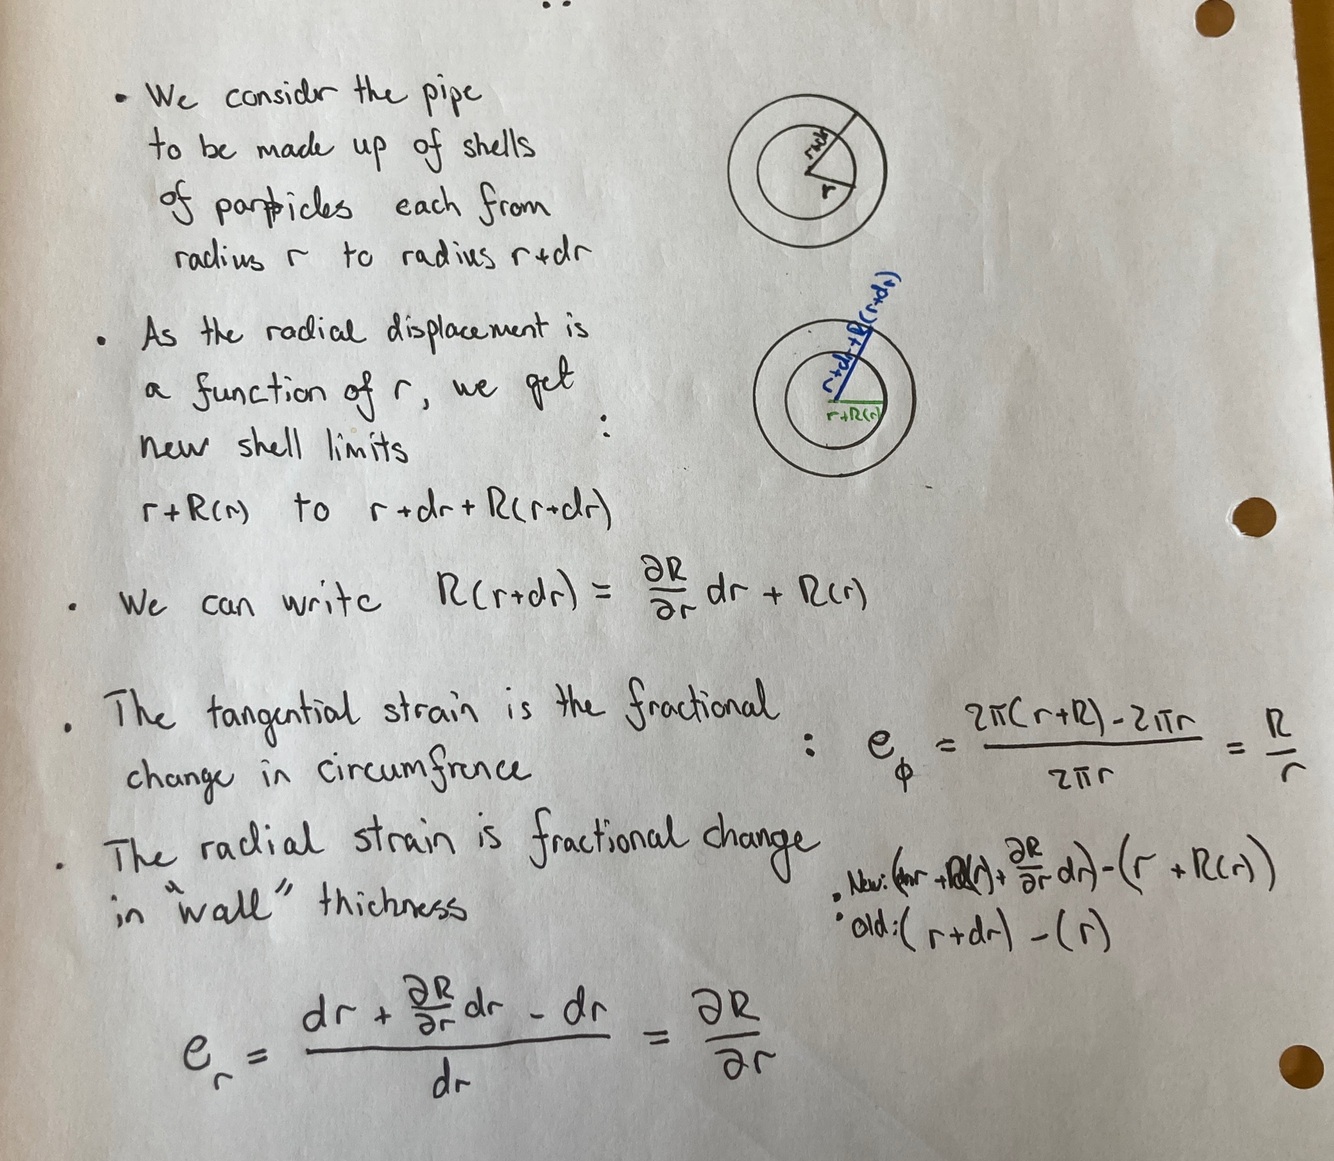 • We consider the pipe
to be made up of shells
of particles each from
radius r to radius r+dr
r+dr
r
• As the radial displacement is
a function of r, we get
new shell limits :
r+R(r) to r+dr+R(r+dr)
r+dr+R(r+dr)
r+R(r)
• We can write R(r+dr) = ∂R/∂r dr + R(r)
• The tangential strain is the fractional
change in circumfrence : e_ϕ = (2π(r+R) - 2πr)/(2πr) = R/r
• The radial strain is fractional change
in a "wall" thickness
• New: ( + R(r) + ∂R/∂r dr) - (r + R(r))
• Old: (r+dr) - (r)
e_r = (dr + ∂R/∂r dr - dr)/dr = ∂R/∂r